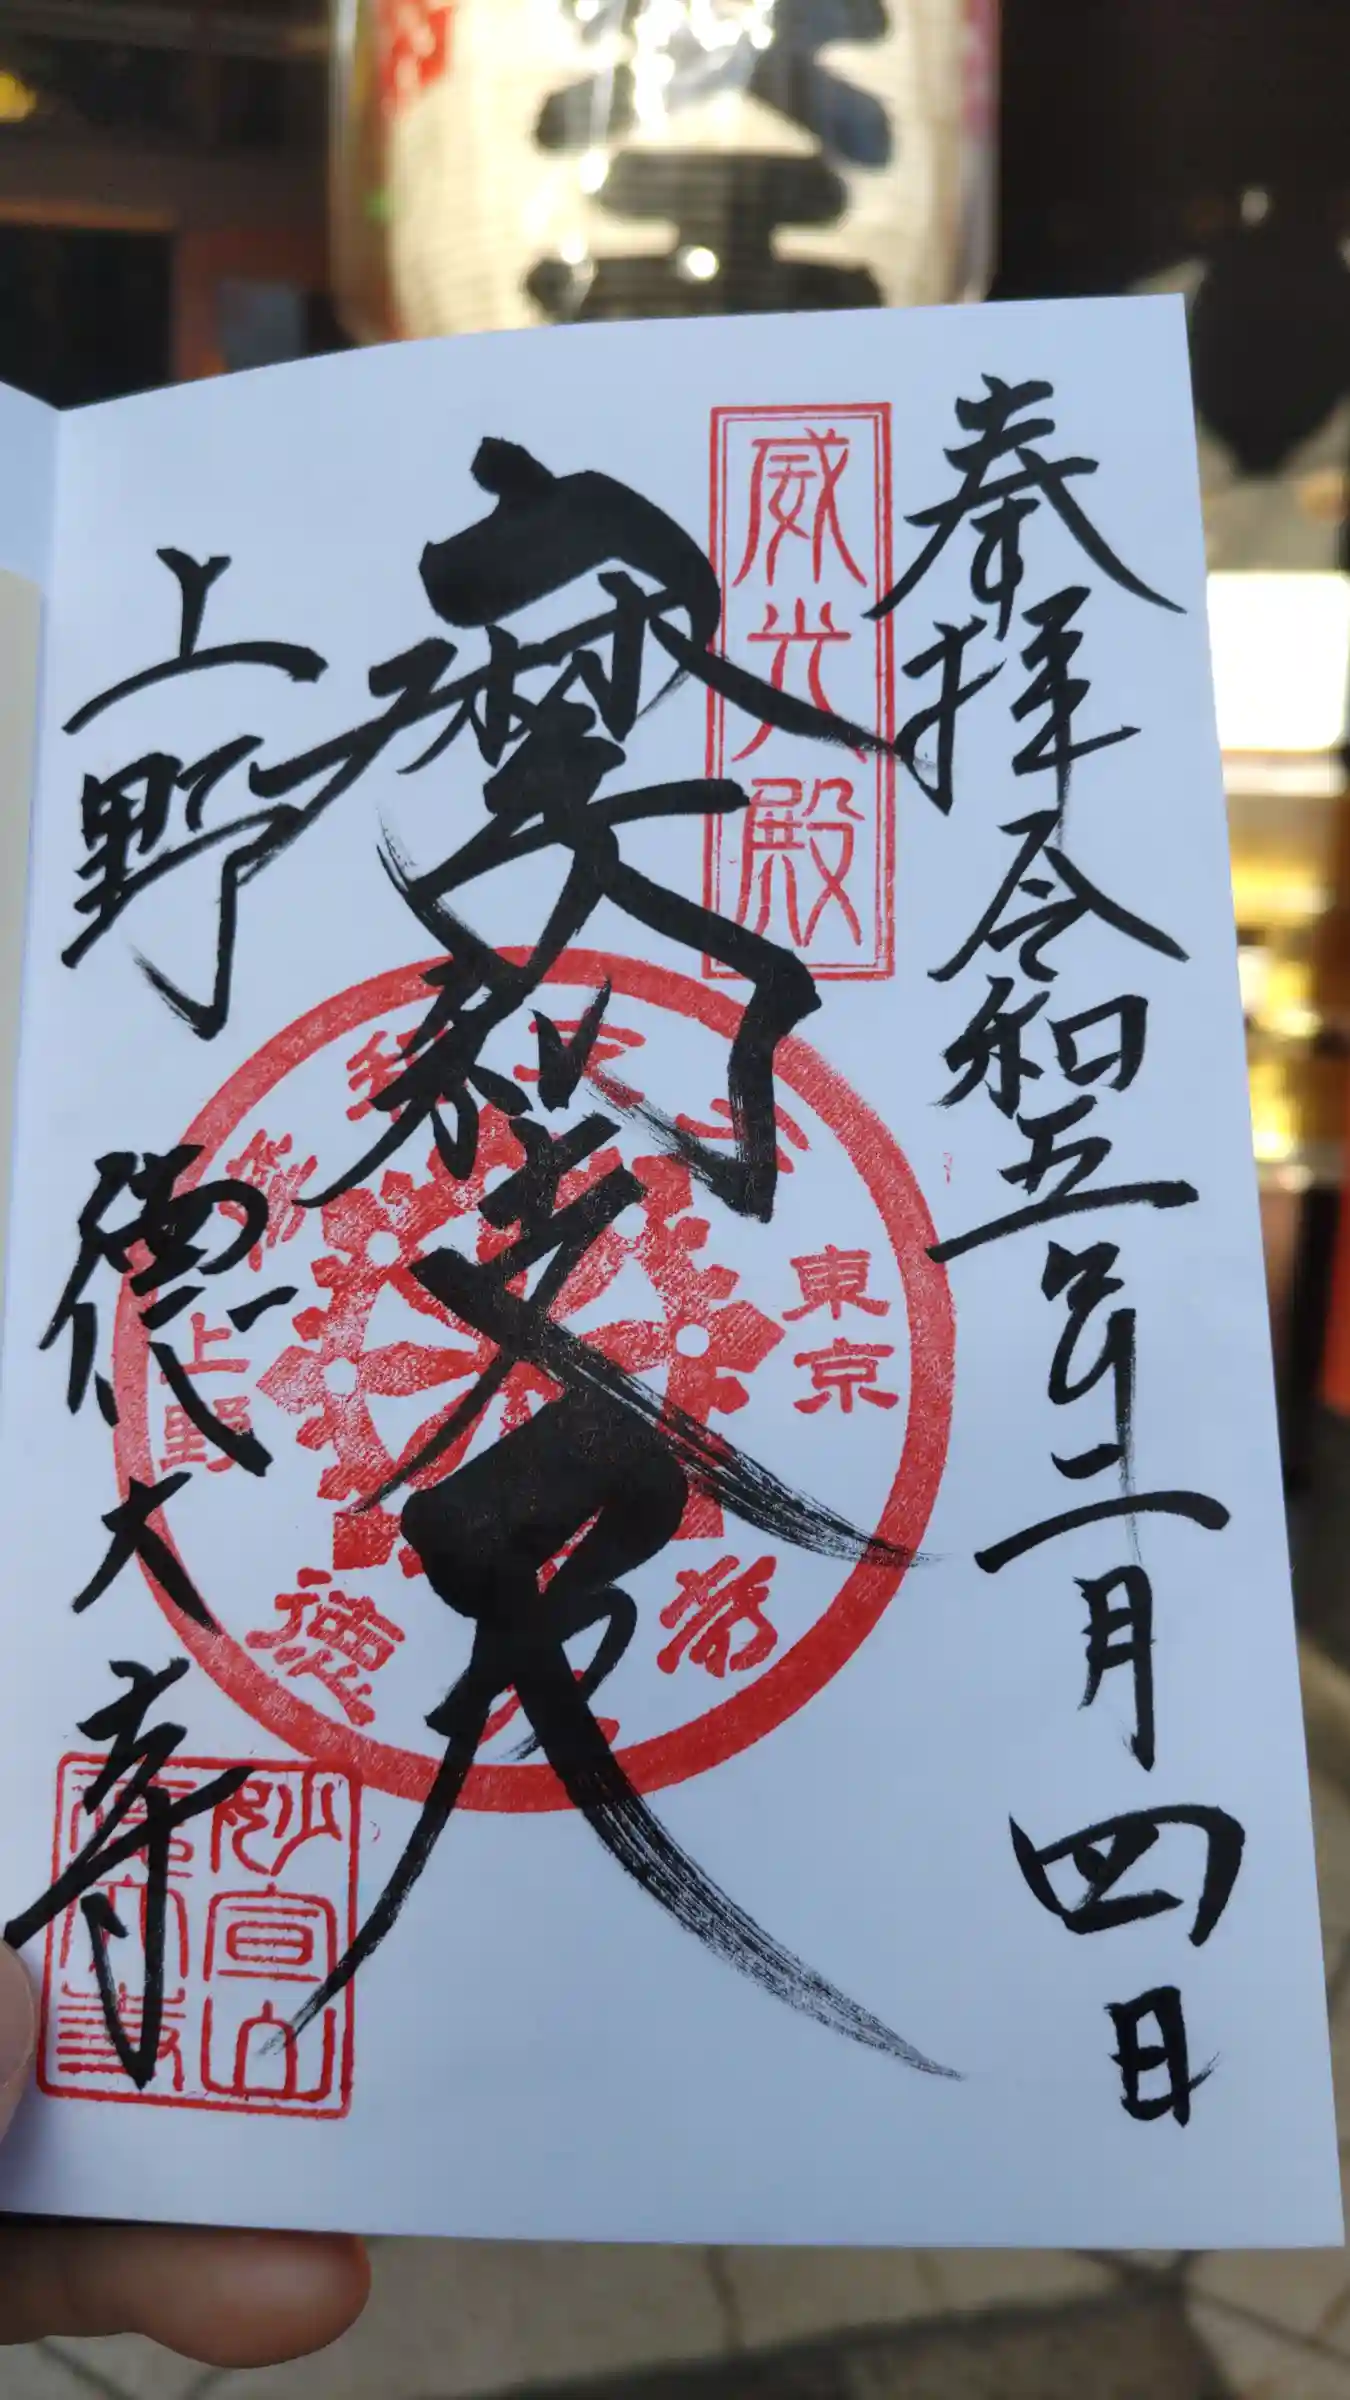 奉拝 令和五年二月四日
威光殿
摩利支天
上野 徳大寺
東京
上野
妙宣山
徳大寺